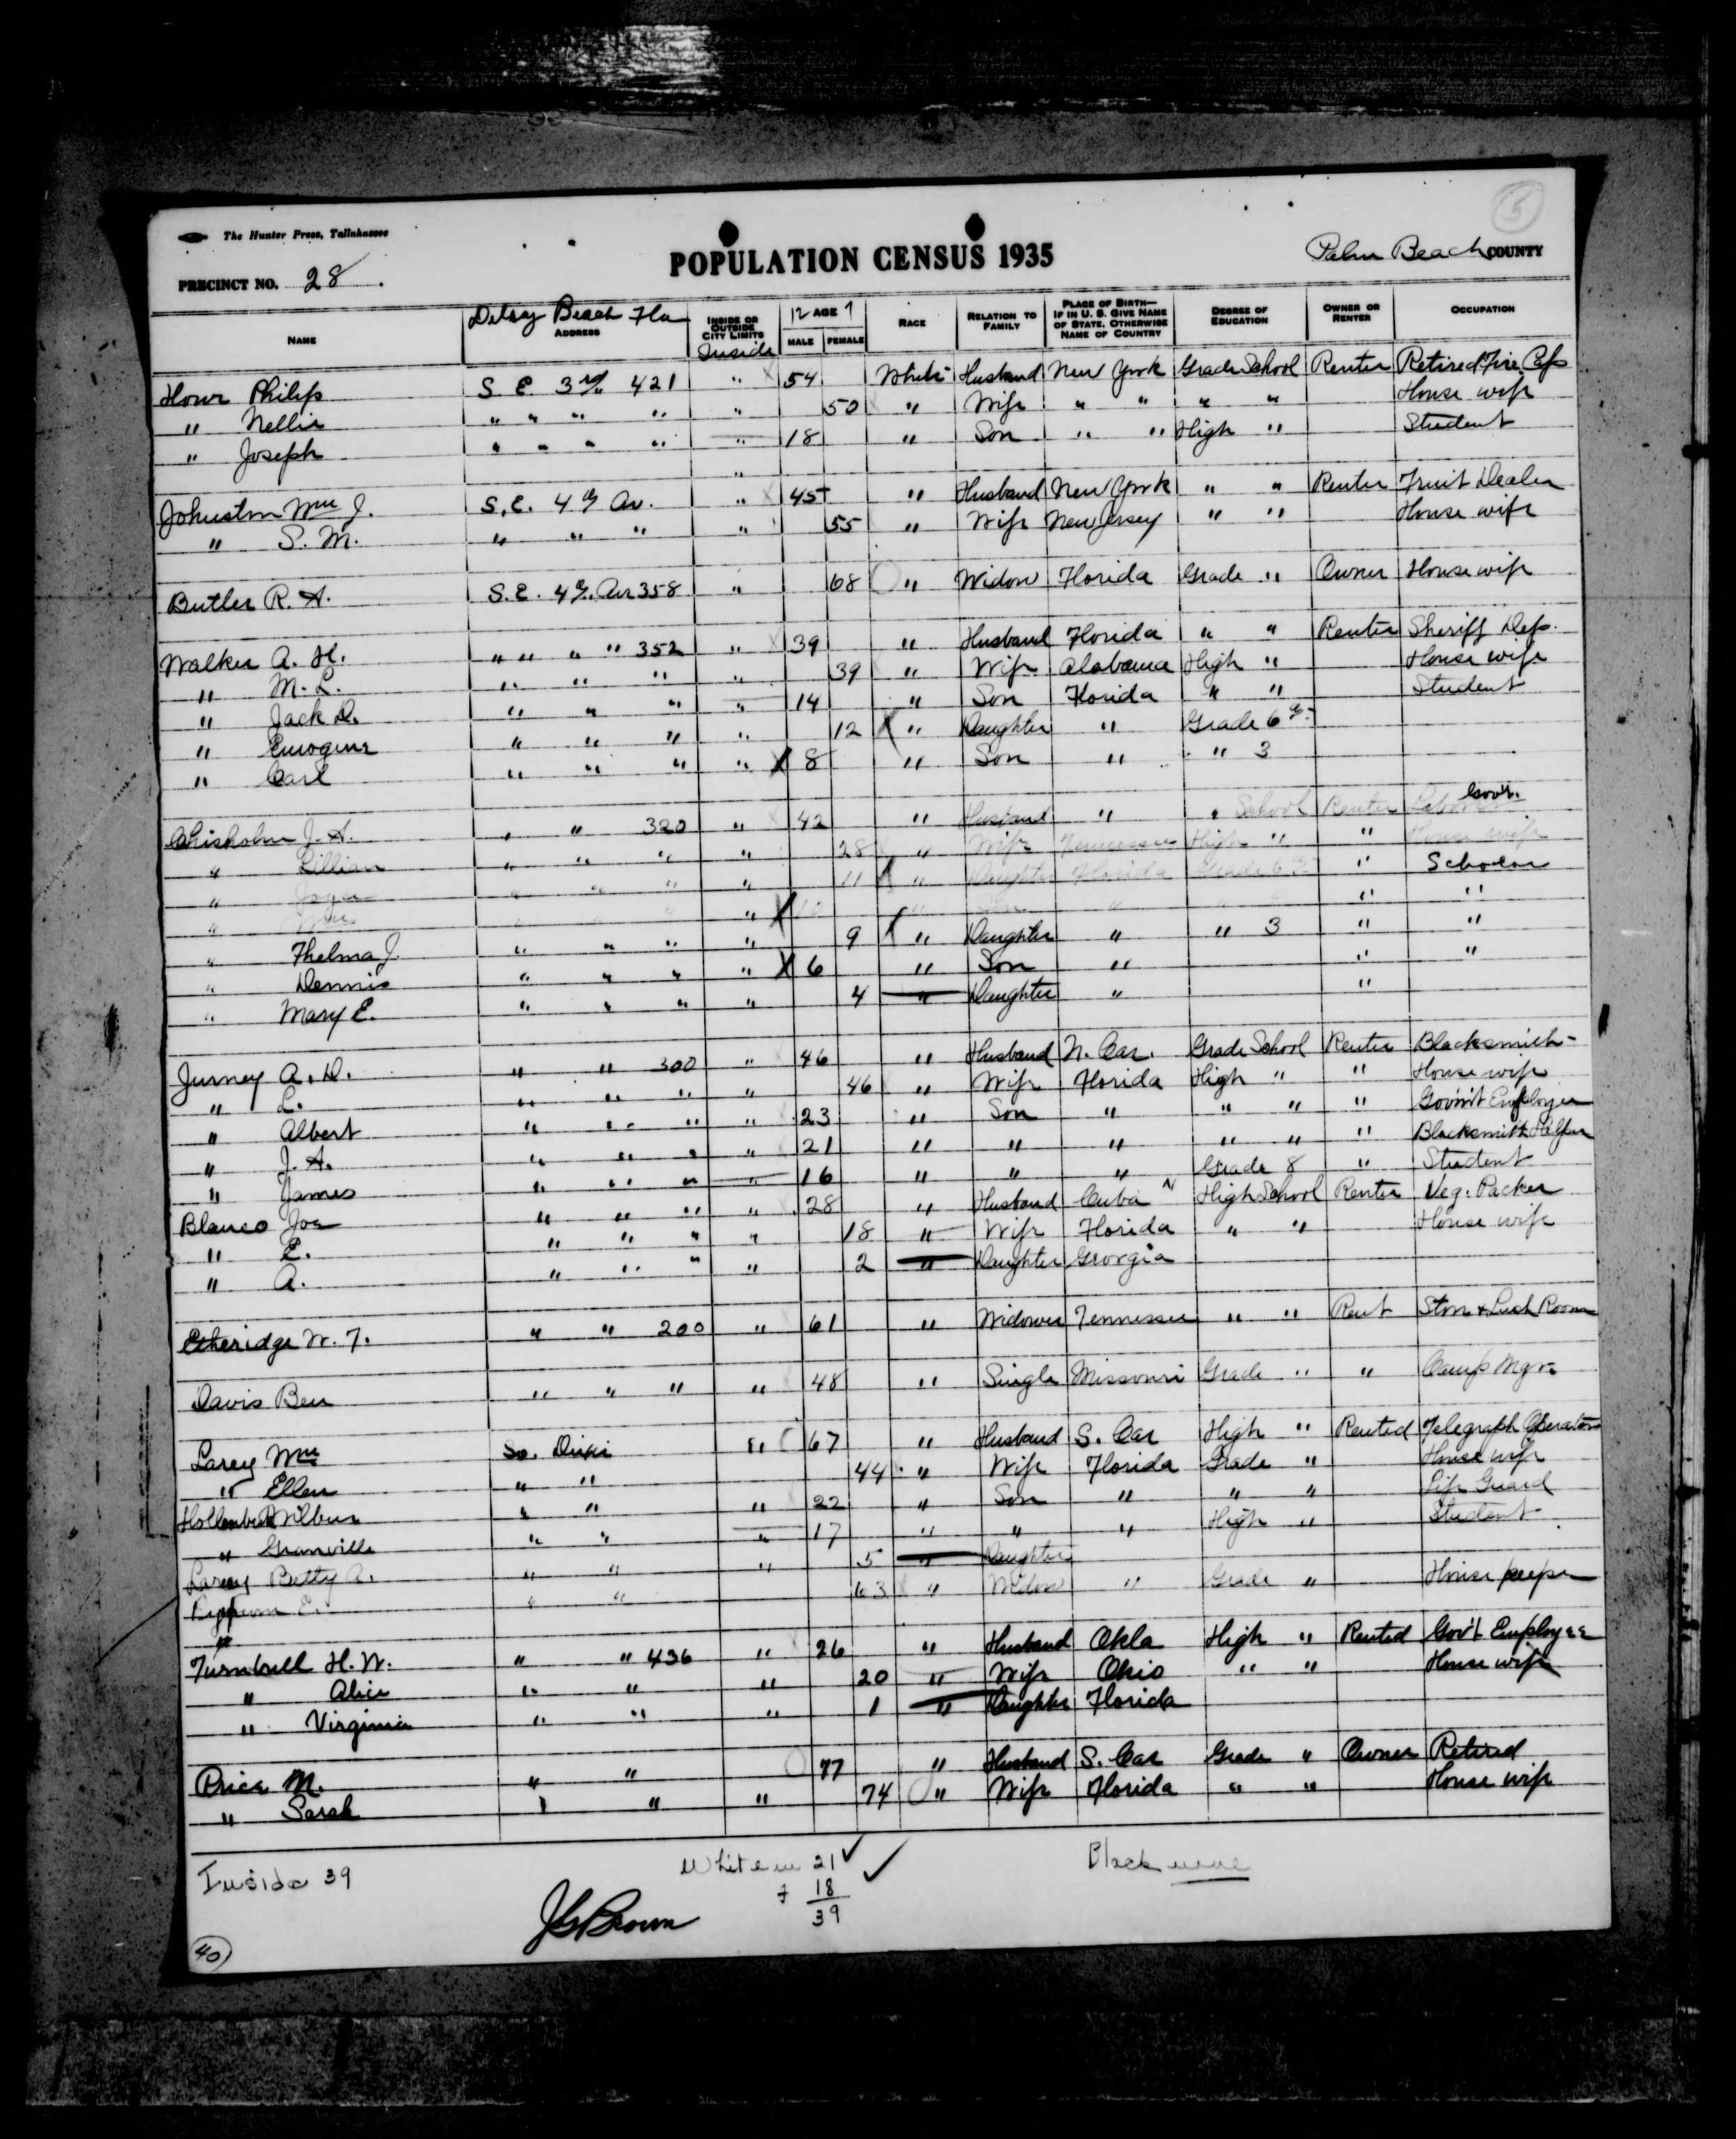 The Hunter Press, Tallahassee
5
POPULATION CENSUS 1935
Palm Beach COUNTY
PRECINCT NO. 28.
NAME Delray Beach Fla ADDRESS INSIDE OR OUTSIDE CITY LIMITS Inside 12 AGE 7 MALE FEMALE RACE RELATION TO FAMILY PLACE OF BIRTH—IF IN U. S. GIVE NAME OF STATE. OTHERWISE NAME OF COUNTRY DEGREE OF EDUCATION OWNER OR RENTER OCCUPATION
Howe Philip S. E. 3rd 421 " 54 White Husband New York Grade School Renter Retired Fire Cap
" Nellie " " " " " 50 " Wife " " " " House wife
" Joseph " " " " " 18 " Son " " High " Student
"
Johnston Wm J. S. E. 4th Av. " 45 " Husband New York " " Renter Fruit Dealer
" S. M. " " " " 55 " Wife New Jersey " " House wife
Butler R. A. S. E. 4th Av 358 " 68 " Widow Florida Grade " Owner House wife
Walker A. H. " " " " 352 " 39 " Husband Florida " " Renter Sheriff Dep.
" M. L. " " " " 39 " Wife Alabama High " House wife
" Jack D. " " " " 14 " Son Florida " " Student
" " " " " 12 X " Daughter " Grade 6th
" Carl " " " " X 8 " Son " " 3
Chisholm J. A. " " 320 " 42 " Husband " " School Renter Laborer Govt.
" Lillian " " " " 28 " Wife Tennessee High " " House wife
" Joyce " " " " 11 X " Daughter Florida Grade 6th " Scholar
" Wm " " " " X 10 " Son " " " " "
" Thelma J. " " " " 9 X " Daughter " " 3 " "
" Dennis " " " " X 6 " Son " " "
" Mary E. " " " " 4 " Daughter " "
Jurney A. D. " " 300 " 46 " Husband N. Car. Grade School Renter Blacksmith
" L. " " " " 46 " Wife Florida High " " House wife
" Albert " " " " 23 " Son " " " " Gov'mt Employee
" J. A. " " " " 21 " " " " " " Blacksmith Helper
" James " " " " 16 " " " Grade 8 " Student
Blanco Joe " " " " 28 " Husband Cuba N High School Renter Veg. Packer
" E. " " " " 18 " Wife Florida " " House wife
" A. " " " " 2 " Daughter Georgia
Etheridge W. T. " " 200 " 61 " Widower Tennessee " " Rent Store & Lush Room
Davis Ben " " " " 48 " Single Missouri Grade " " Camp Mgr.
Larey Wm So. Dixi " 67 " Husband S. Car High " Rented Telegraph Operator
" Ellen " " 44 " Wife Florida Grade " House wife
Wilbur " " " 22 " Son " " " Life Guard
" Granville " " " 17 " " " High " Student
Larey Betty A. " " " 5 " Daughter
E. " " 63 " Widow " Grade " House keeper
"
Turnbull H. W. " " 436 " 26 " Husband Okla High " Rented Gov't Employee
" Alice " " " 20 " Wife Ohio " " House wife
" Virginia " " " 1 " Daughter Florida
Price M. " " 77 " Husband S. Car Grade " Owner Retired
" Sarah " " " 74 " Wife Florida " " House wife
Inside 39
White m 21 ✓ ✓
f 18
39
Black none
J G Brown
40